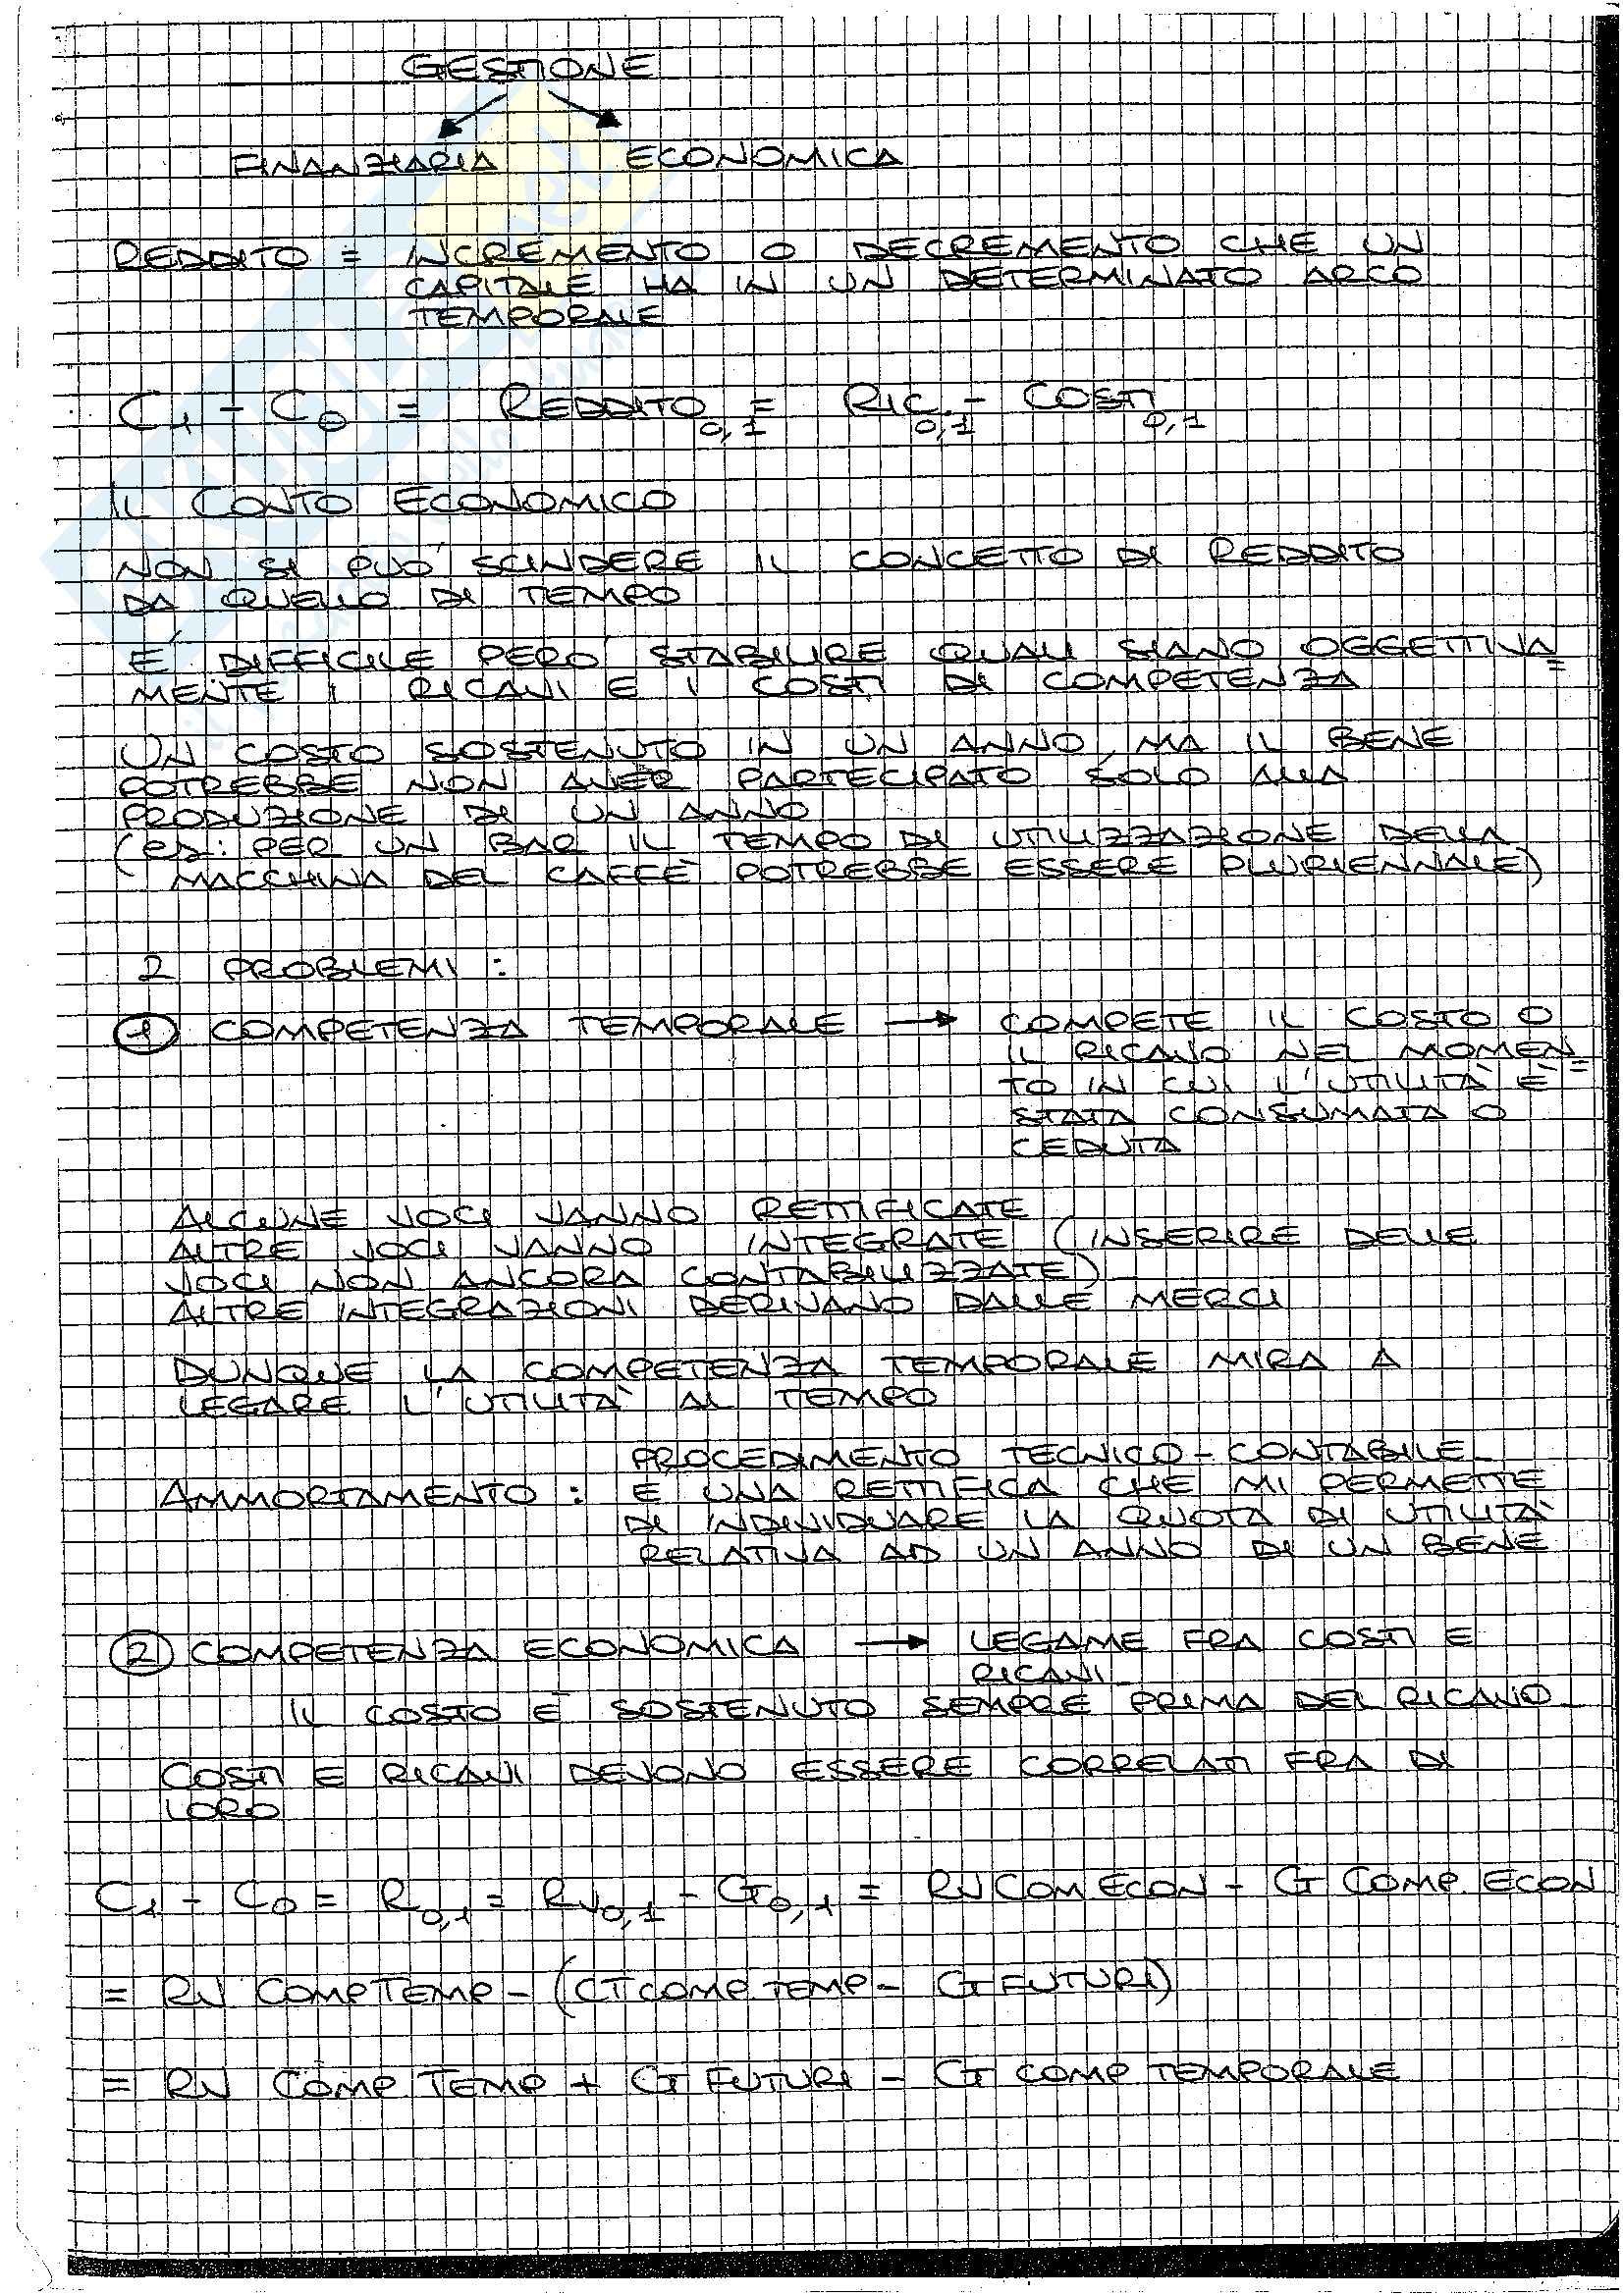 GESTIONE
FINANZIARIA ECONOMICA
REDDITO = INCREMENTO O DECREMENTO CHE UN
CAPITALE HA IN UN DETERMINATO ARCO
TEMPORALE
C₁ - C₀ = REDDITO₀,₁ = RIC.₀,₁ - COSTI₀,₁
IL CONTO ECONOMICO
NON SI PUÒ SCINDERE IL CONCETTO DI REDDITO
DA QUELLO DI TEMPO
È DIFFICILE PERÒ STABILIRE QUALI SIANO OGGETTIVA=
MENTE I RICAVI E I COSTI DI COMPETENZA
UN COSTO SOSTENUTO IN UN ANNO, MA IL BENE
POTREBBE NON AVER PARTECIPATO SOLO ALLA
PRODUZIONE DI UN ANNO
(es: PER UN BAR IL TEMPO DI UTILIZZAZIONE DELLA
MACCHINA DEL CAFFÈ POTREBBE ESSERE PLURIENNALE)
2 PROBLEMI:
① COMPETENZA TEMPORALE → COMPETE IL COSTO O
IL RICAVO NEL MOMEN=
TO IN CUI L'UTILITÀ È
STATA CONSUMATA O
CEDUTA
ALCUNE VOCI VANNO RETTIFICATE
ALTRE VOCI VANNO INTEGRATE (INSERIRE DELLE
VOCI NON ANCORA CONTABILIZZATE)
ALTRE INTEGRAZIONI DERIVANO DALLE MERCI
DUNQUE LA COMPETENZA TEMPORALE MIRA A
LEGARE L'UTILITÀ AL TEMPO
PROCEDIMENTO TECNICO-CONTABILE
AMMORTAMENTO: È UNA RETTIFICA CHE MI PERMETTE
DI INDIVIDUARE LA QUOTA DI UTILITÀ
RELATIVA AD UN ANNO DI UN BENE
② COMPETENZA ECONOMICA → LEGAME FRA COSTI E
RICAVI
IL COSTO È SOSTENUTO SEMPRE PRIMA DEL RICAVO
COSTI E RICAVI DEVONO ESSERE CORRELATI FRA DI
LORO
C₁ - C₀ = R₀,₁ = RV₀,₁ - CT₀,₁ = RV COM ECON - CT COMP. ECON
= RV COMP TEMP - (CT COMP. TEMP - CT FUTURI)
= RV COMP TEMP + CT FUTURI - CT COMP TEMPORALE